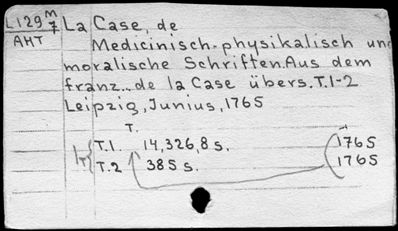 L129 M/7 La Case, de
АНТ Medicinisch-physikalisch und
moralische Schriften. Aus dem
franz... de la Case übers. T.1-2
Leipzig, Junius, 1765
T.
T.1. 14,326,8 s. 1765
T.2 385 s. 1765